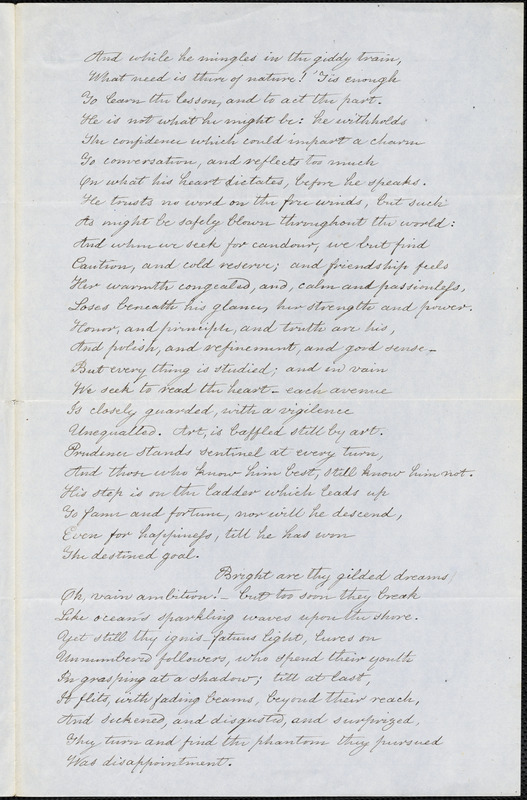 And while he mingles in the giddy train,
What need is there of nature! 'Tis enough
To learn the lesson, and to act the part.
He is not what he might be: he withholds
The confidence which could impart a charm
To conversation, and reflects too much
On what his heart dictates, before he speaks.
He trusts no word on the free winds, but such
As might be safely blown throughout the world:
And when we seek for candour, we but find
Caution, and cold reserve; and friendship feels
Her warmth congealed, and, calm and passionless,
Loses beneath his glance, her strength and power.
Honor, and principle, and truth are his,
And polish, and refinement, and good sense—
But every thing is studied; and in vain
We seek to read the heart— each avenue
Is closely guarded, with a vigilence
Unequalled. Art, is baffled still by art.
Prudence stands sentinel at every turn,
And those who know him best, still know him not.
His step is on the ladder which leads up
To fame and fortune, nor will he descend,
Even for happiness, till he has won
The destined goal.
Bright are thy gilded dreams
Oh, vain ambition!— but too soon they break
Like ocean's sparkling waves upon the shore.
Yet still thy ignis-fatuus light, lures on
Unnumbered followers, who spend their youth
In grasping at a shadow; till at last,
It flits, with fading beams, beyond their reach,
And sickened, and disgusted, and surprized,
They turn and find the phantom they pursued
Was disappointment.